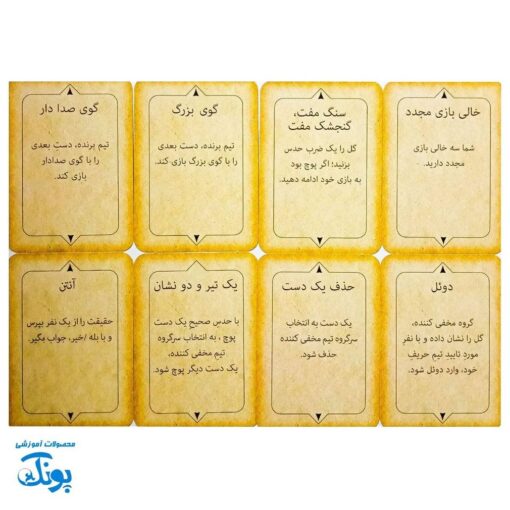 خالی بازی مجدد
شما سه خالی بازی
مجدد دارید.
سنگ مفت،
گنجشک مفت
گل را یک ضرب حدس
بزنید؛ اگر پوچ بود
به بازی خود ادامه دهید.
گوی بزرگ
تیم برنده، دست بعدی
را با گوی بزرگ بازی کند.
گوی صدا دار
تیم برنده، دست بعدی
را با گوی صدادار
بازی کند.
دوئل
گروه مخفی کننده،
گل را نشان داده و با نفر
مورد تایید تیم حریف
خود، وارد دوئل شود.
حذف یک دست
یک دست به انتخاب
سرگروه تیم مخفی کننده
حذف شود.
یک تیر و دو نشان
با حدس صحیح یک دست
پوچ، به انتخاب سرگروه
تیم مخفی کننده،
یک دست دیگر پوچ شود.
آنتن
حقیقت را از یک نفر بپرس
و با بله /خیر، جواب بگیر.
محصولات آموزشی
پونک